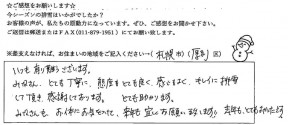 ★ご感想をお願いします★
今シーズンの排雪はいかがでしたか？
お客様の声が、私たちの原動力になっています。ぜひ、ご感想をお聞かせ下さい。
ご返信は郵送またはFAX(011-879-1951)にてお願い致します。
※差支えなければ、お住まいの地域をご記入ください→( 札幌市)(厚別 区)
いつも有り難うございます。
みなさん、とても丁寧に、態度もとても良く、感じもよく、キレイに排雪
して頂き、感謝しております。とても助かります。
みなさんも、お体にお気をつけて、来年も宜しくお願い致します!!